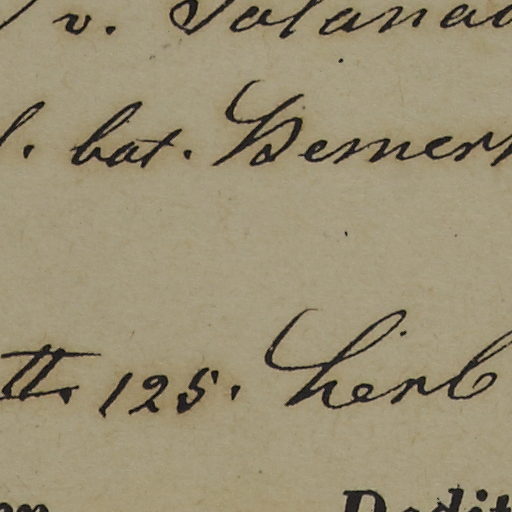 v. Solana
l. bat. Bemer
tt. 125. herb
Dedit